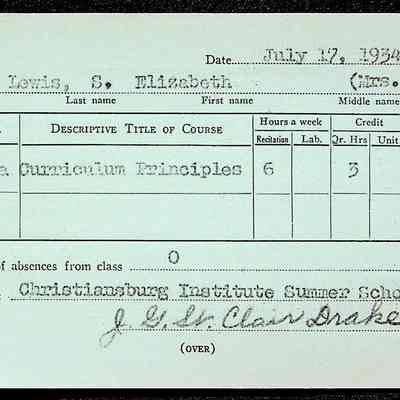 Date July 17, 1934
Lewis, S. Elizabeth (Mrs.
Last name First name Middle name
Descriptive Title of Course Hours a week Credit
Recitation Lab. Qr. Hrs Unit
a Curriculum Principles 6 3
of absences from class 0
Christiansburg Institute Summer Scho
J. G. St. Clair Drake
(OVER)